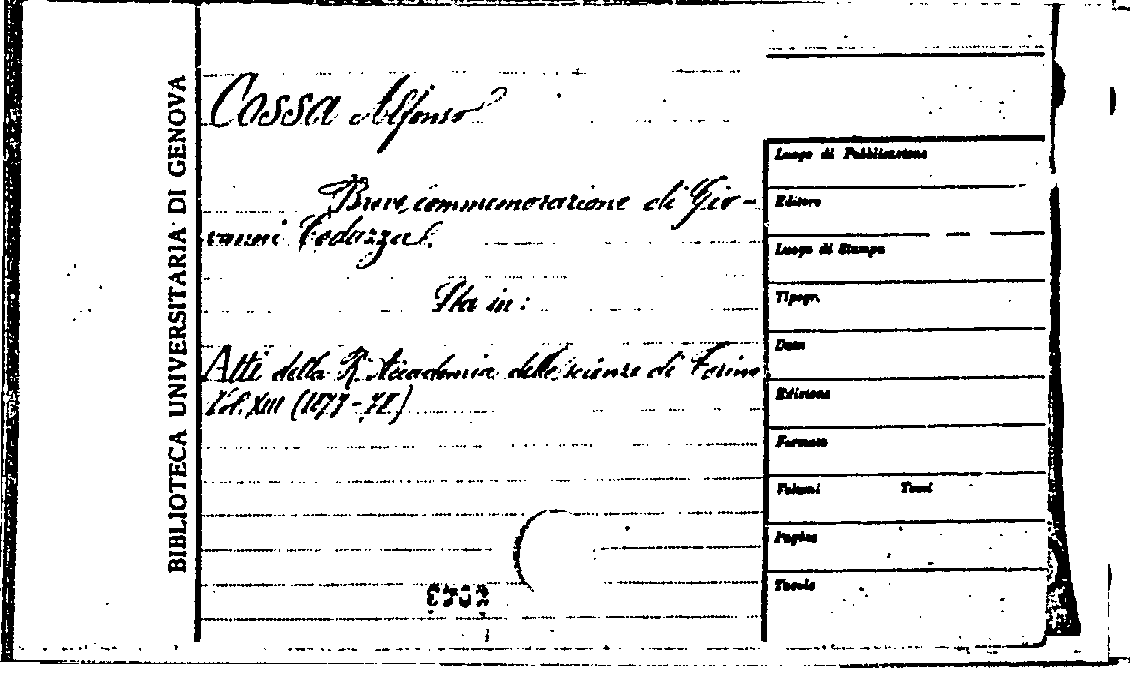 BIBLIOTECA UNIVERSITARIA DI GENOVA
Cossa Alfonso
Breve commemorazione di Gio-
vanni Codazza.
Sta in:
Atti della R. Accademia delle scienze di Torino
Vol. XIII (1877-78)
Luogo di Pubblicazione
Editore
Luogo di Stampa
Tipogr.
Data
Edizione
Formato
Volumi Tomi
Pagine
Tavole